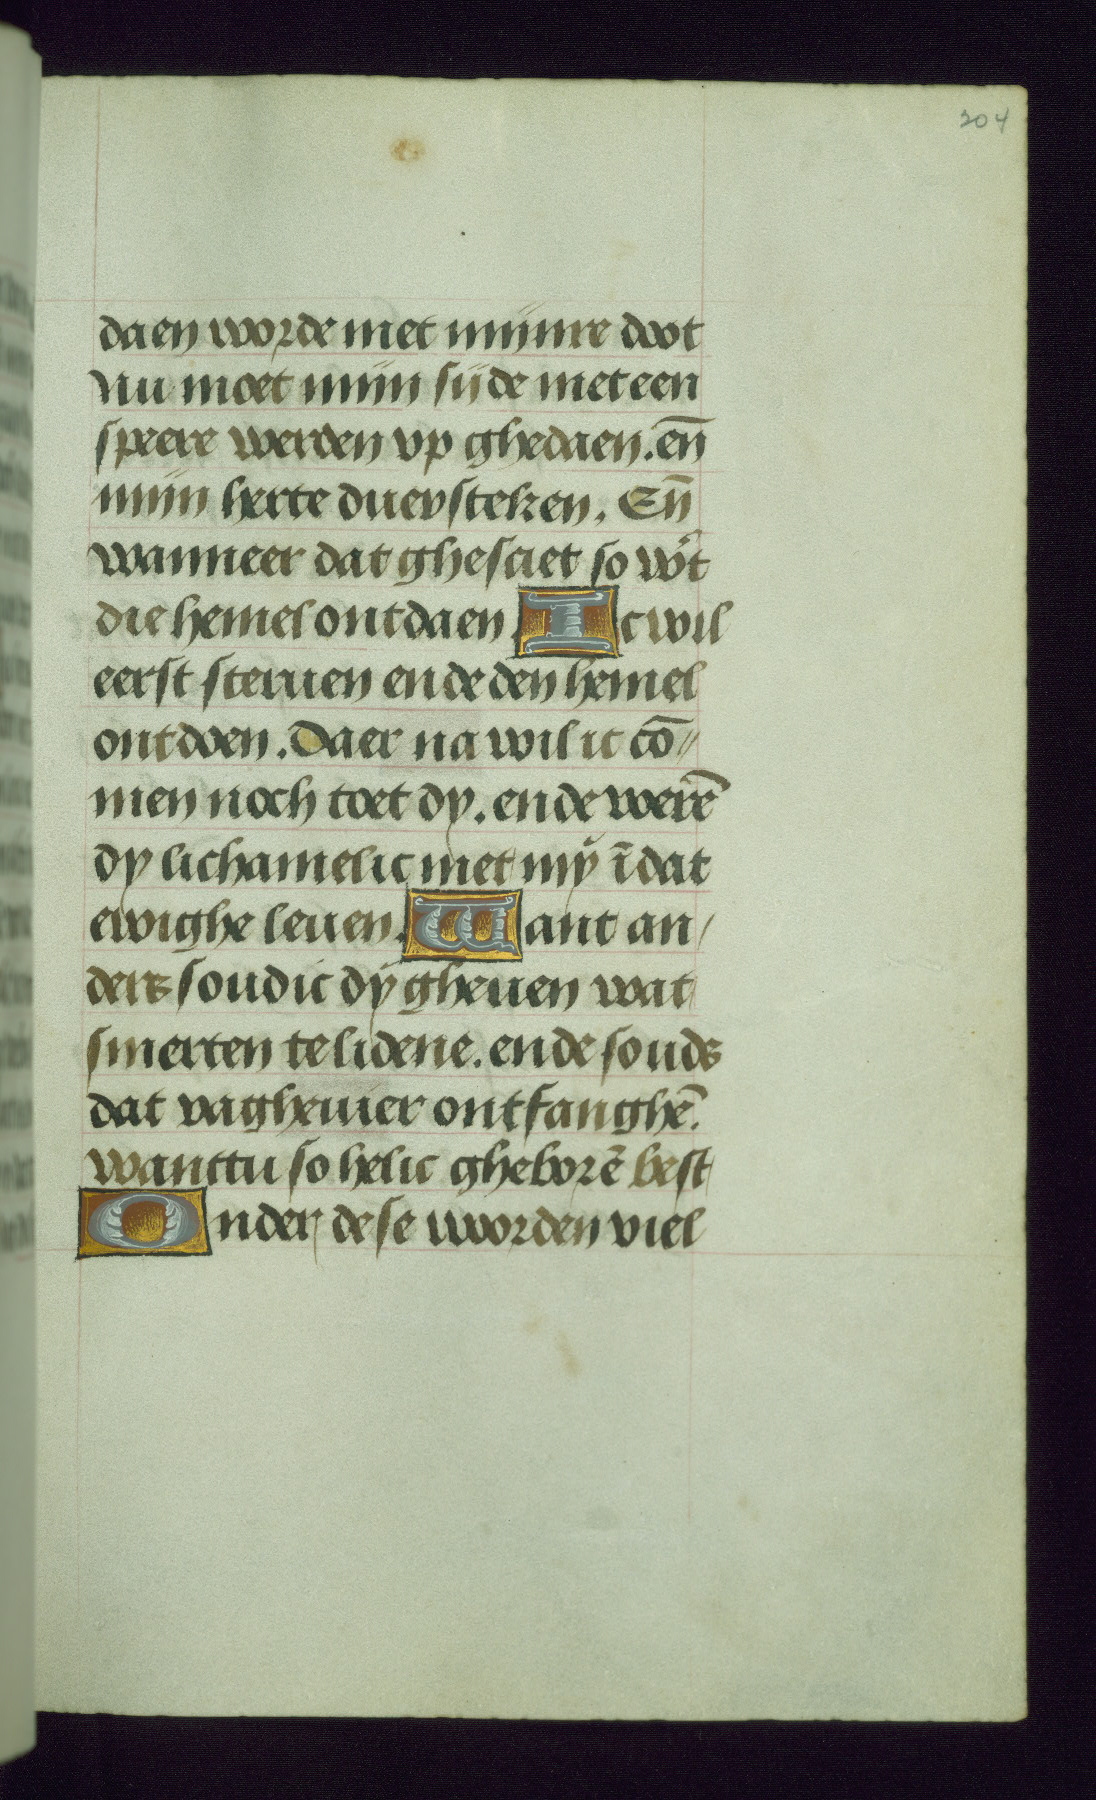 204
daen worde met mijnre doot
Nu moet mijn sijde met een
speere werden vp ghedaen. en̄
mijn herte duersteken. En̄
wanneer dat ghesciet so wͬt
die hemel ontdaen Ic wil
eerst steruen ende den hemel
ontdoen. Daer na wil ic cō-
men noch toet dy. ende werē
dy lichamelic met mȳ ī dat
ewighe leuen. Want an/
ders soudic dy gheuen wat
smerten te lidene. ende souds
dat vagheuier ontfanghē.
wanttu so helic gheborē best
Onder dese woorden viel